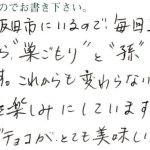 のでお書き下さい。
阪田市にいるので、毎回
ら、"巣ごもり"と"孫"
。これからも変わらない
を楽しみにしています
チョコが、とても美味し